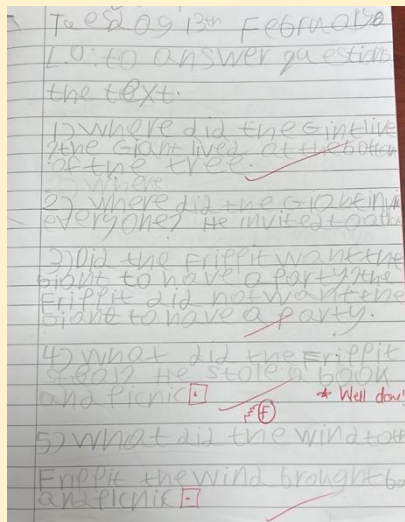 Tuesday 13th February
L.O: to answer questions
the text.
1) Where did the Gint live
?the Giant lived at the bottom
of the tree.
2) Where
2) Where did the Giant invi
everyone? He invited to a
3) Did the Frippit want the
Giant to have a party? the
Frippit did not want the
Giant to have a party.
4) What did the Frippit
steal? He stole a book
and Picnic.
* Well done!
5) What did the wind to th
Frippit the wind brought bo
and Picnic.